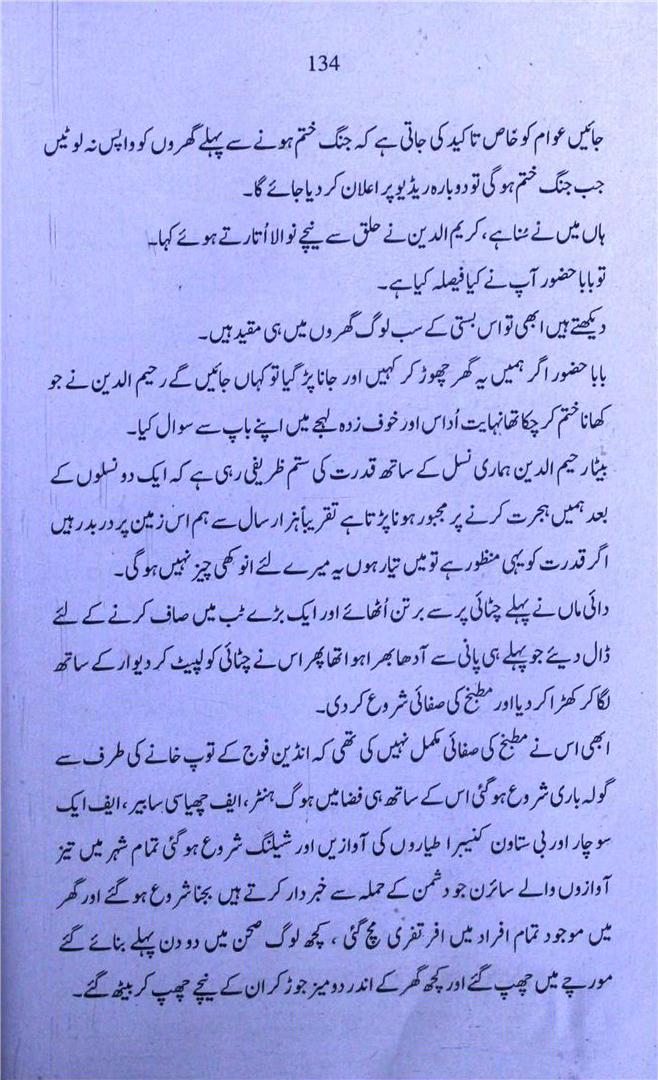 134
جائیں عوام کو خاص تاکید کی جاتی ہے کہ جنگ ختم ہونے سے پہلے گھروں کو واپس نہ لوٹیں
جب جنگ ختم ہو گی تو دوبارہ ریڈیو پر اعلان کر دیا جائے گا۔
ہاں میں نے سُنا ہے، کریم الدین نے حلق سے نیچے نوالا اُتارتے ہوئے کہا۔
تو بابا حضور آپ نے کیا فیصلہ کیا ہے۔
دیکھتے ہیں ابھی تو اس بستی کے سب لوگ گھروں میں ہی مقید ہیں۔
بابا حضور اگر ہمیں یہ گھر چھوڑ کر کہیں اور جانا پڑ گیا تو کہاں جائیں گے رحیم الدین نے جو
کھانا ختم کر چکا تھا نہایت اُداس اور خوف زدہ لہجے میں اپنے باپ سے سوال کیا۔
بیٹا رحیم الدین ہماری نسل کے ساتھ قدرت کی ستم ظریفی رہی ہے کہ ایک دو نسلوں کے
بعد ہمیں ہجرت کرنے پر مجبور ہونا پڑتا ہے تقریباً ہزار سال سے ہم اس زمین پر دربدر ہیں
اگر قدرت کو یہی منظور ہے تو میں تیار ہوں یہ میرے لئے انوکھی چیز نہیں ہو گی۔
دائی ماں نے پہلے چٹائی پر سے برتن اُٹھائے اور ایک بڑے ٹب میں صاف کرنے کے لئے
ڈال دیئے جو پہلے ہی پانی سے آدھا بھرا ہوا تھا پھر اس نے چٹائی کو لپیٹ کر دیوار کے ساتھ
لگا کر کھڑا کر دیا اور مطبخ کی صفائی شروع کر دی۔
ابھی اس نے مطبخ کی صفائی مکمل نہیں کی تھی کہ انڈین فوج کے توپ خانے کی طرف سے
گولہ باری شروع ہو گئی اس کے ساتھ ہی فضا میں ہوگ ہنٹر، ایف چھیاسی سابیر، ایف ایک
سو چار اور بی ستاون کنیبرا طیاروں کی آوازیں اور شیلنگ شروع ہو گئی تمام شہر میں تیز
آوازوں والے سائرن جو دشمن کے حملہ سے خبردار کرتے ہیں بجنا شروع ہو گئے اور گھر
میں موجود تمام افراد میں افرتفری مچ گئی، کچھ لوگ صحن میں دو دن پہلے بنائے گئے
مورچے میں چھپ گئے اور کچھ گھر کے اندر دو میز جوڑ کر ان کے نیچے چھپ کر بیٹھ گئے۔